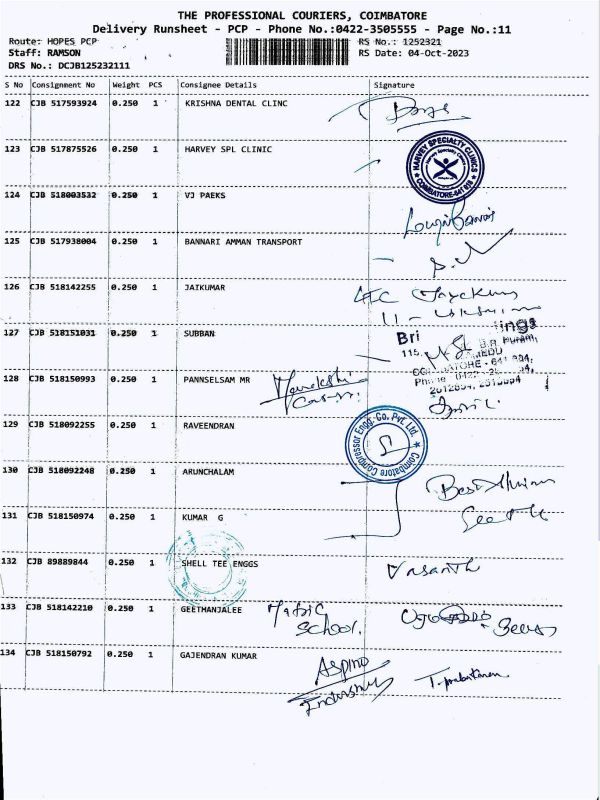 THE PROFESSIONAL COURIERS, COIMBATORE
Delivery Runsheet - PCP - Phone No.:0422-3505555 - Page No.:11
Route: HOPES PCP RS No.: 1252321
Staff: RAMSON RS Date: 04-Oct-2023
DRS No.: DCJB125232111
S No Consignment No Weight PCS Consignee Details Signature
122 CJB 517593924 0.250 1 KRISHNA DENTAL CLINC
123 CJB 517875526 0.250 1 HARVEY SPL CLINIC
HARVEY SPECIALITY CLINICS
Harvey Speciality Clinics
COIMBATORE-641
124 CJB 518003532 0.250 1 VJ PAEKS
125 CJB 517938004 0.250 1 BANNARI AMMAN TRANSPORT
126 CJB 518142255 0.250 1 JAIKUMAR
127 CJB 518151031 0.250 1 SUBBAN
Bri ings
115,
Phone
128 CJB 518150993 0.250 1 PANNSELSAM MR
129 CJB 518092255 0.250 1 RAVEENDRAN
Coimbatore Compressor Engg. Co. Pvt. Ltd.
130 CJB 518092248 0.250 1 ARUNCHALAM
131 CJB 518150974 1 0.250 1 KUMAR G
132 CJB 89889844 0.250 1 SHELL TEE ENGGS
Vasanth
133 CJB 518142210 0.250 1 GEETHANJALEE Matric School.
134 CJB 518150792 0.250 1 GAJENDRAN KUMAR